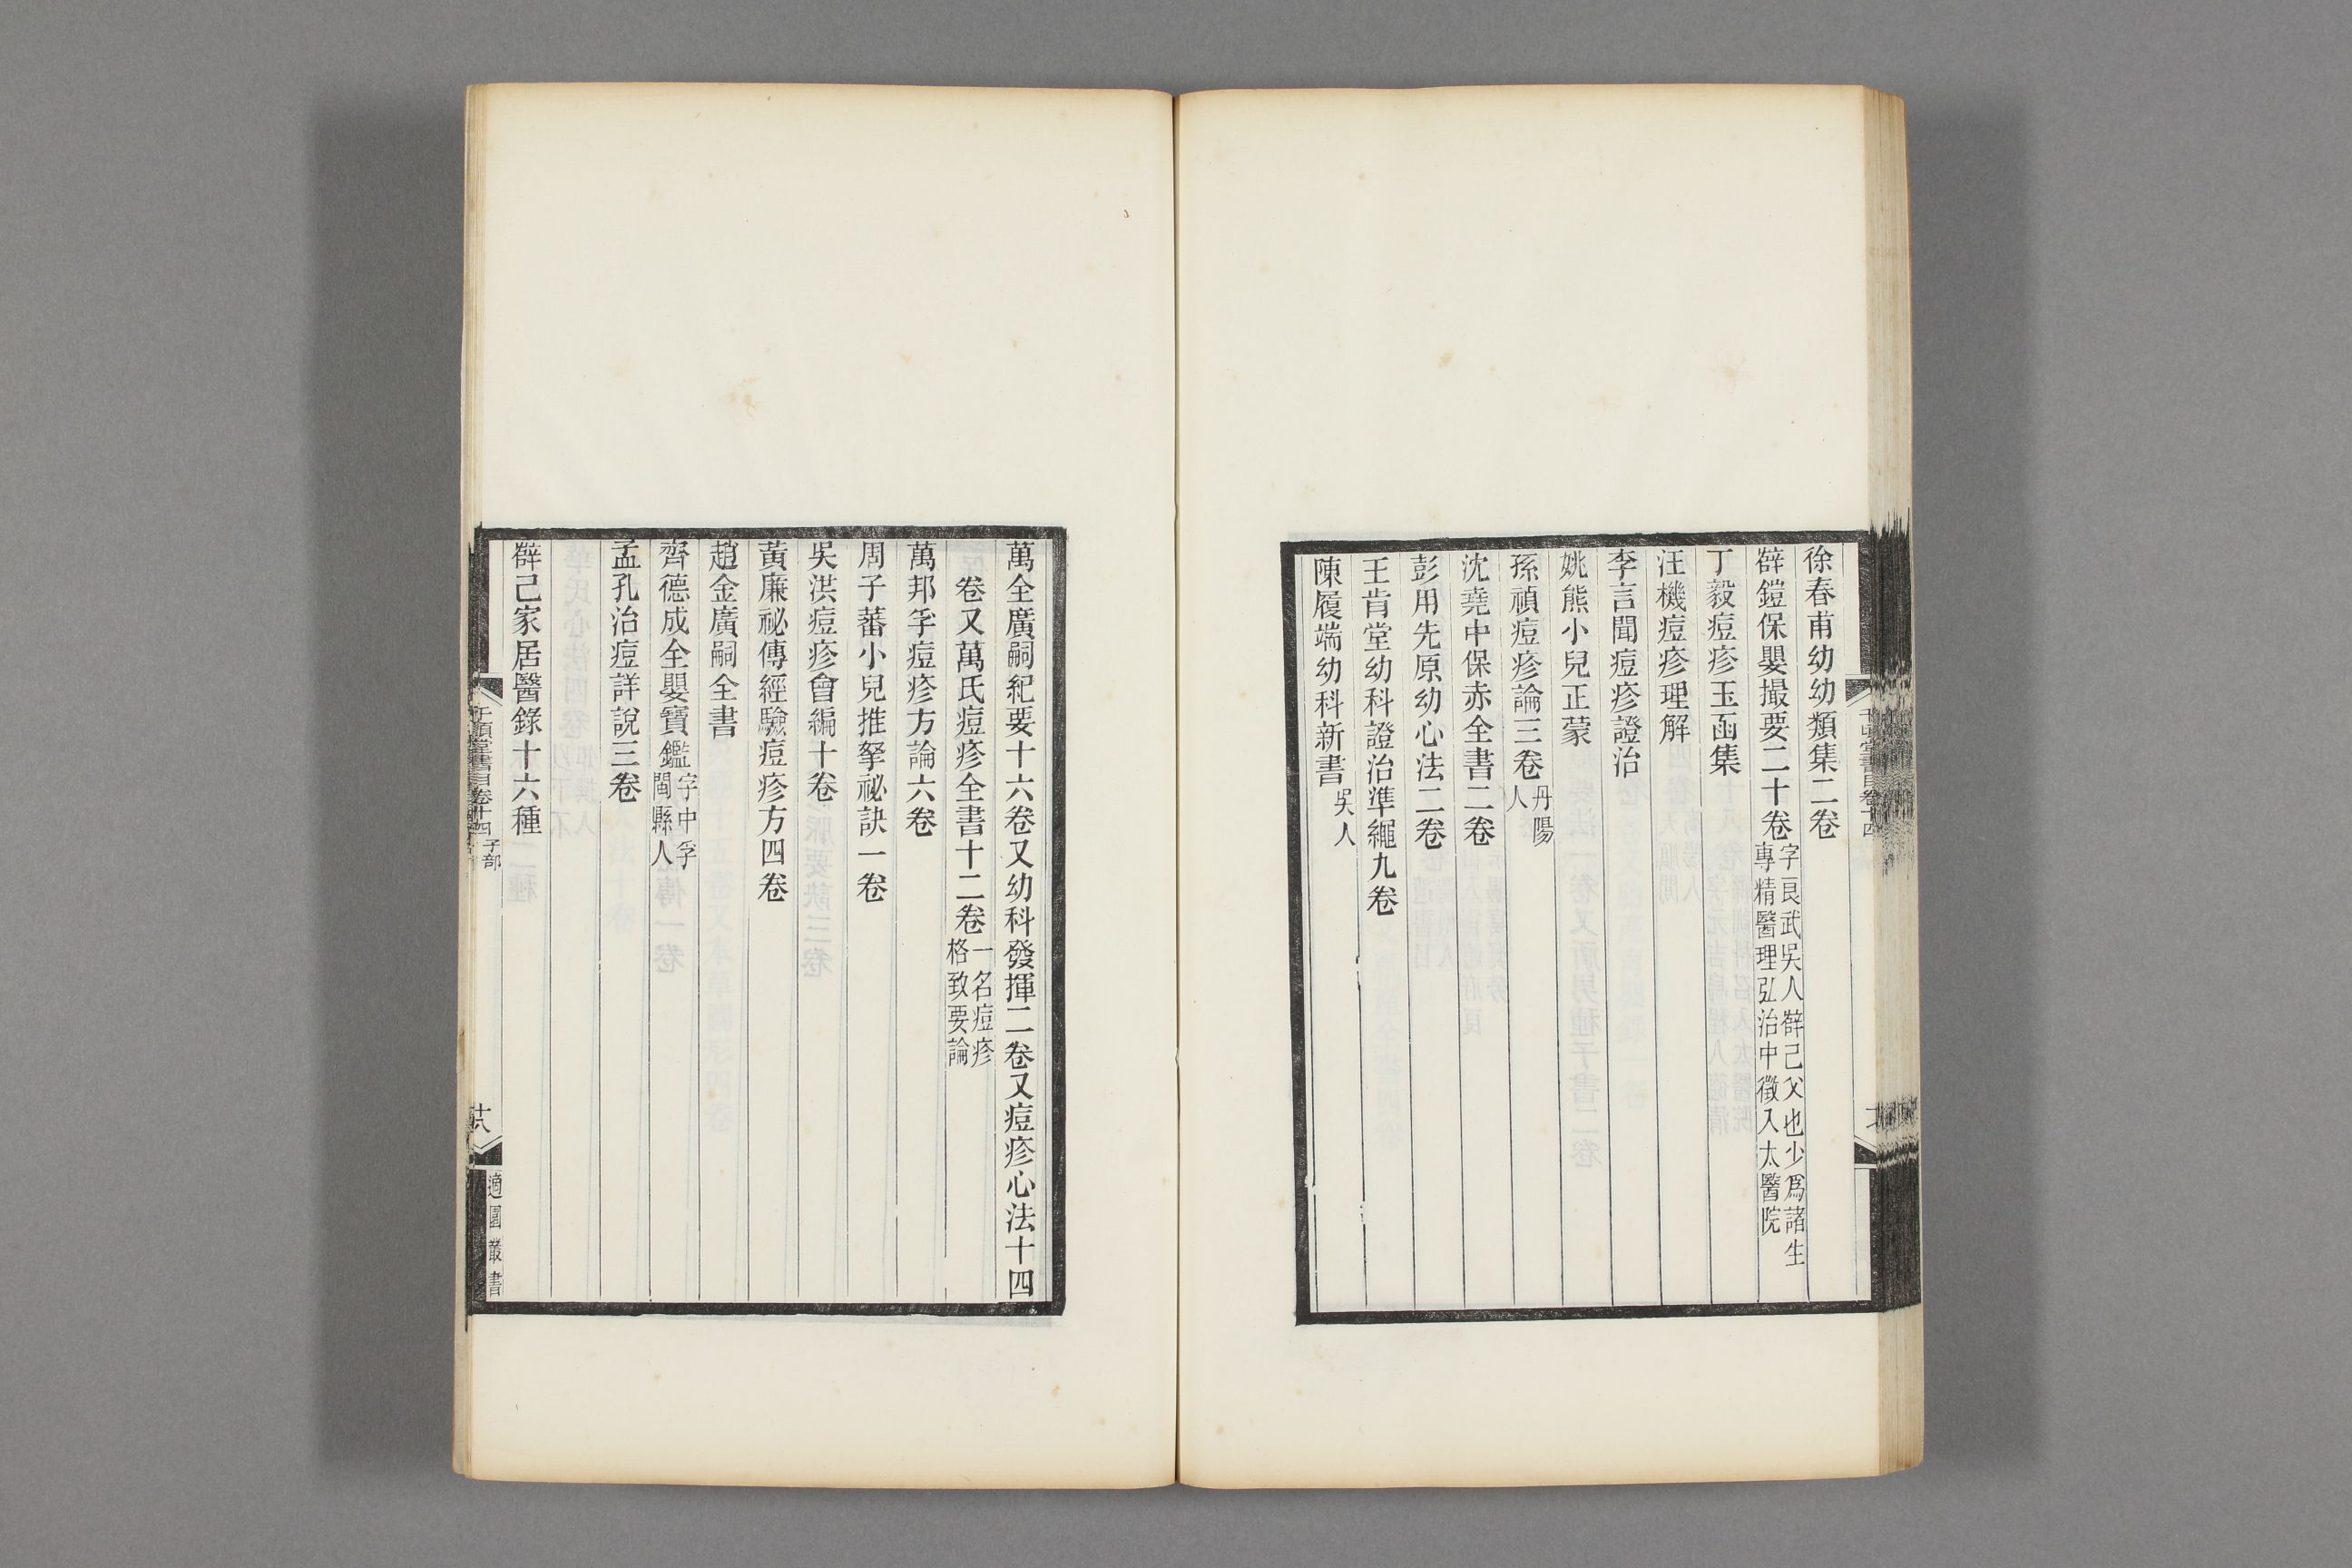 徐春甫幼幼類集二卷
薛鎧保嬰撮要二十卷字良武吳人薛己父也少爲諸生專精醫理弘治中徵入太醫院
丁毅痘疹玉函集
汪機痘疹理解
李言聞痘疹證治
姚熊小兒正蒙
孫禎痘疹論三卷丹陽人
沈堯中保赤全書二卷
彭用先原幼心法二卷
王肯堂幼科證治準繩九卷
陳履端幼科新書吳人
萬全廣嗣紀要十六卷又幼科發揮二卷又痘疹心法十四
卷又萬氏痘疹全書十二卷一名痘疹格致要論
萬邦孚痘疹方論六卷
周子蕃小兒推拏祕訣一卷
吳洪痘疹會編十卷
黃廉祕傳經驗痘疹方四卷
趙金廣嗣全書
齊德成全嬰寶鑑字中孚閩縣人
孟孔治痘詳說三卷
薛己家居醫錄十六種
千頃堂書目卷十四 子部
十八
適園叢書